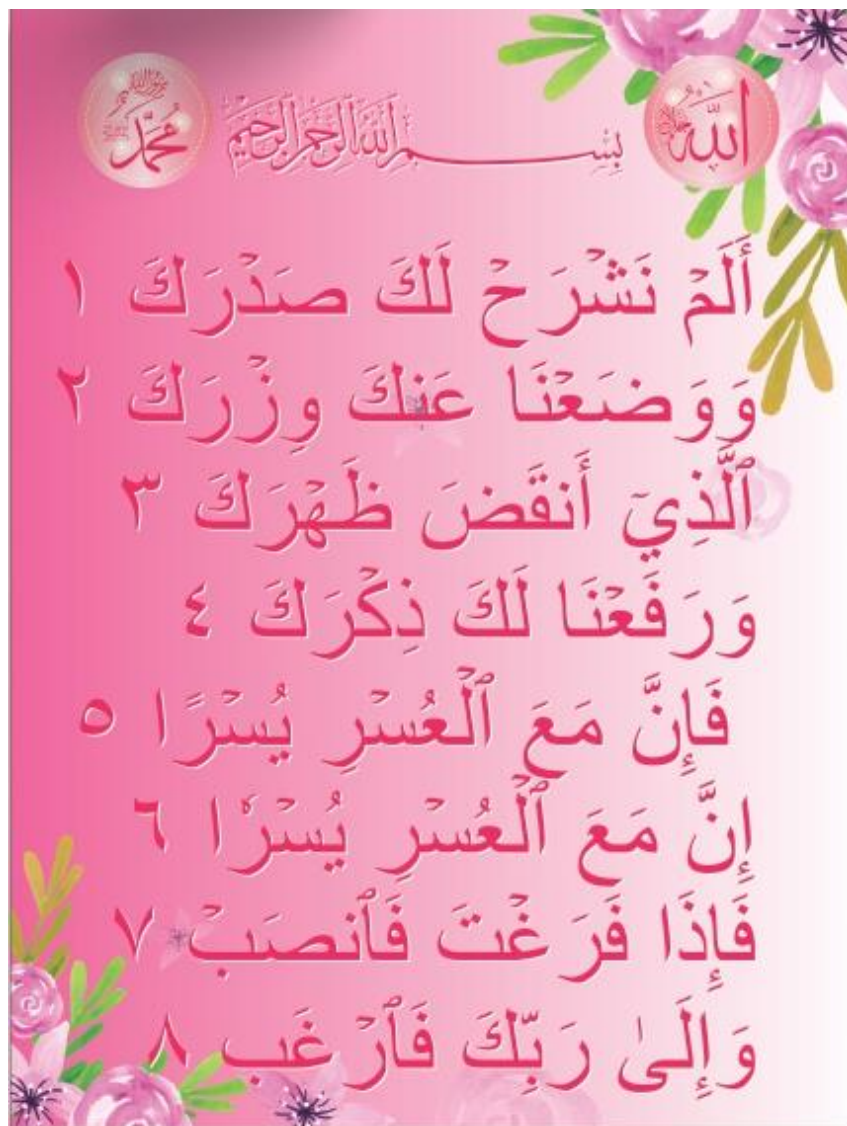 الله جل جلاله
بِسْمِ ٱللَّهِ ٱلرَّحْمَٰنِ ٱلرَّحِيمِ
مُحَمَّد
أَلَمۡ نَشۡرَحۡ لَكَ صَدۡرَكَ ١
وَوَضَعۡنَا عَنكَ وِزۡرَكَ ٢
ٱلَّذِيٓ أَنقَضَ ظَهۡرَكَ ٣
وَرَفَعۡنَا لَكَ ذِكۡرَكَ ٤
فَإِنَّ مَعَ ٱلۡعُسۡرِ يُسۡرًا ٥
إِنَّ مَعَ ٱلۡعُسۡرِ يُسۡرٗا ٦
فَإِذَا فَرَغۡتَ فَٱنصَبۡ ٧
وَإِلَىٰ رَبِّكَ فَٱرۡغَب ٨